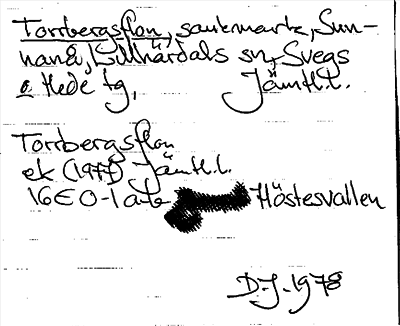 Torrbergsflon, sankmark, Sun-
nanå, Lillhärdals sn, Svegs
o Hede tg, Jämtl.l.
Torrbergsflon
ek (1977) Jämtl.l.
16E0-1ab Höstesvallen
D.J. 1978